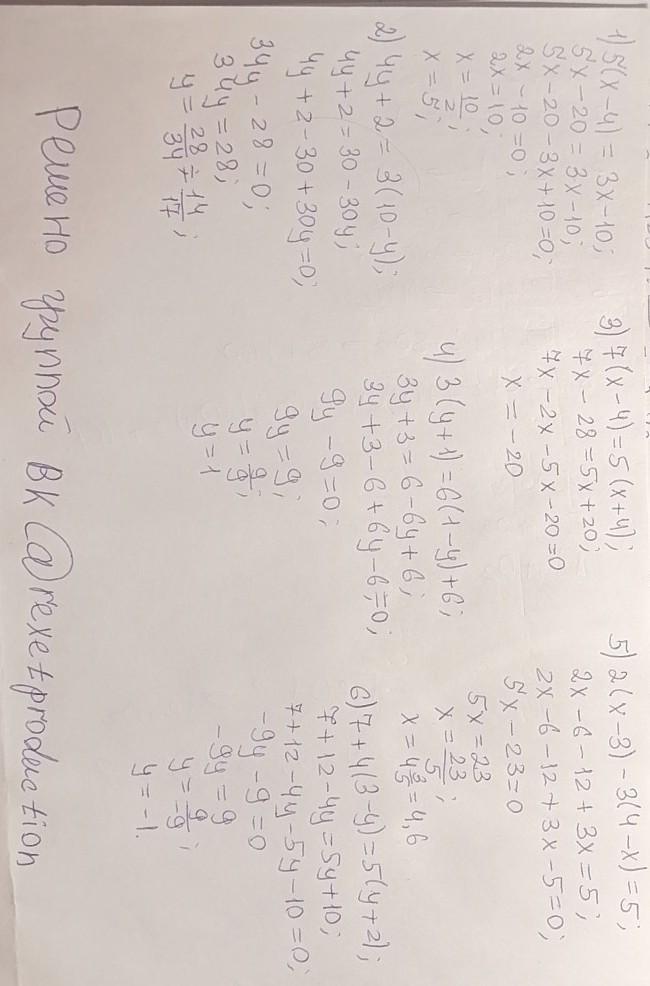 1) 5(x-4) = 3x-10;
5x-20 = 3x-10;
5x-20-3x+10=0;
2x-10=0;
2x=10;
x = 10/2;
x = 5;
2) 4y+2 = 3(10-y);
4y+2=30-30y;
4y+2-30+30y=0;
34y-28=0;
34y=28;
y = 28/34 = 14/17;
3) 7(x-4)=5(x+4);
7x-28=5x+20;
7x-2x-5x-20=0
x = -20
4) 3(y+1)=6(1-y)+6;
3y+3=6-6y+6;
3y+3-6+6y-6=0;
9y-9=0;
9y=9;
y=9/9;
y=1
5) 2(x-3)-3(4-x)=5;
2x-6-12+3x=5;
2x-6-12+3x-5=0;
5x-23=0
5x=23
x=23/5;
x=4 3/5=4,6
6) 7+4(3-y)=5(y+2);
7+12-4y=5y+10;
7+12-4y-5y-10=0;
-9y-9=0
-9y=9
y=9/-9;
y=-1.
Решено группой ВК @rexetproduction